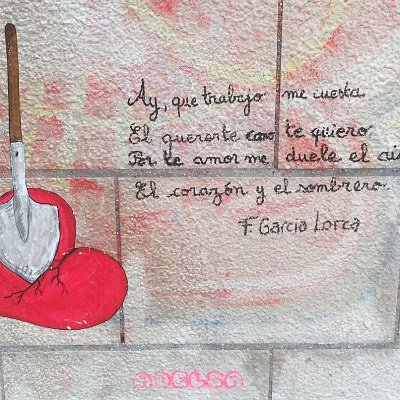 Ay, que trabajo me cuesta
El quererte como te quiero
Por te amor me duele el ai
El corazón y el sombrero.
F. Garcia Lorca
ADELSA